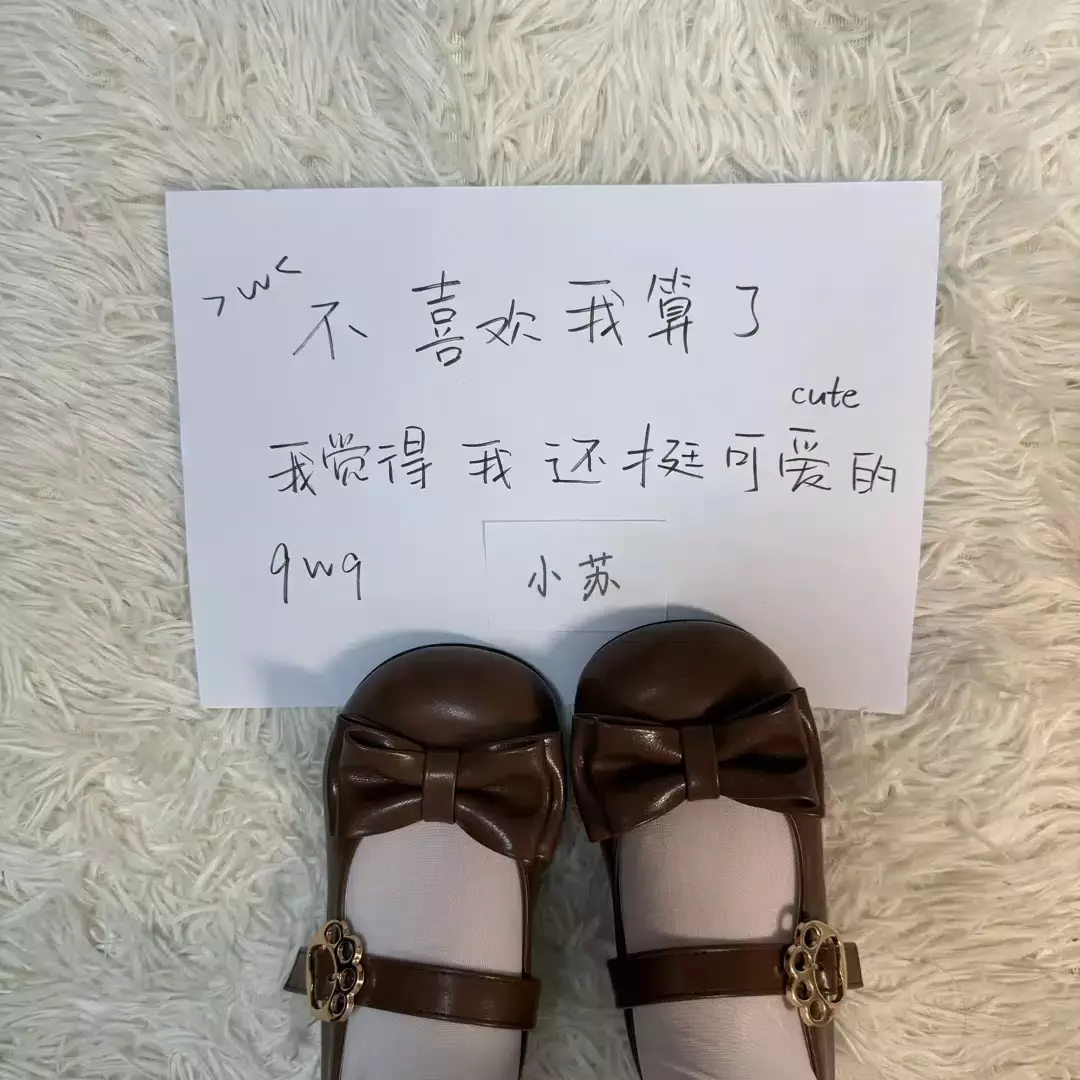 >w<
不喜欢我算了
cute
我觉得我还挺可爱的
qwq
小苏